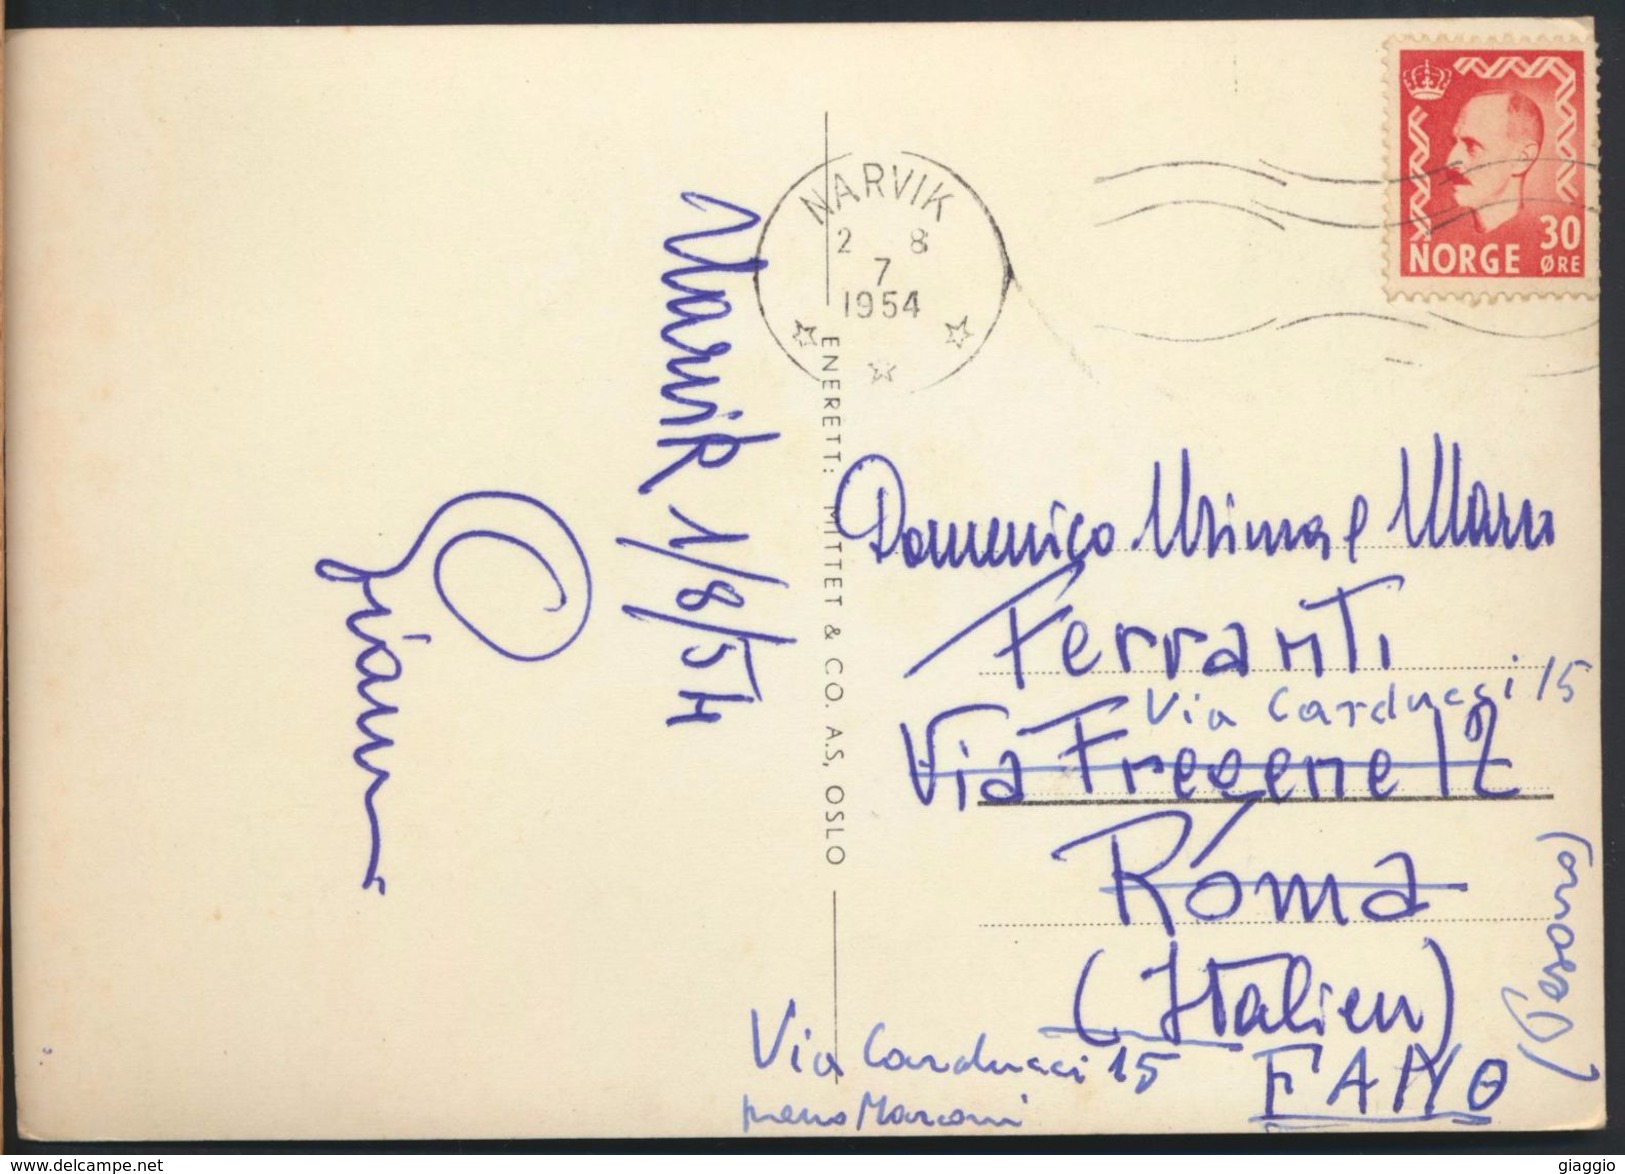 NARVIK
2 8
7
1954
30
NORGE ØRE
Narvik 1/8/54
Gianni
ENERETT: MITTET & CO. A.S, OSLO
Domenico Mimma e
Ferranti
Via Carducci 15
Via Fregene 12
Roma
(Italien)
Via Carducci 15
FANO
Marconi
giaggio
www.delcampe.net